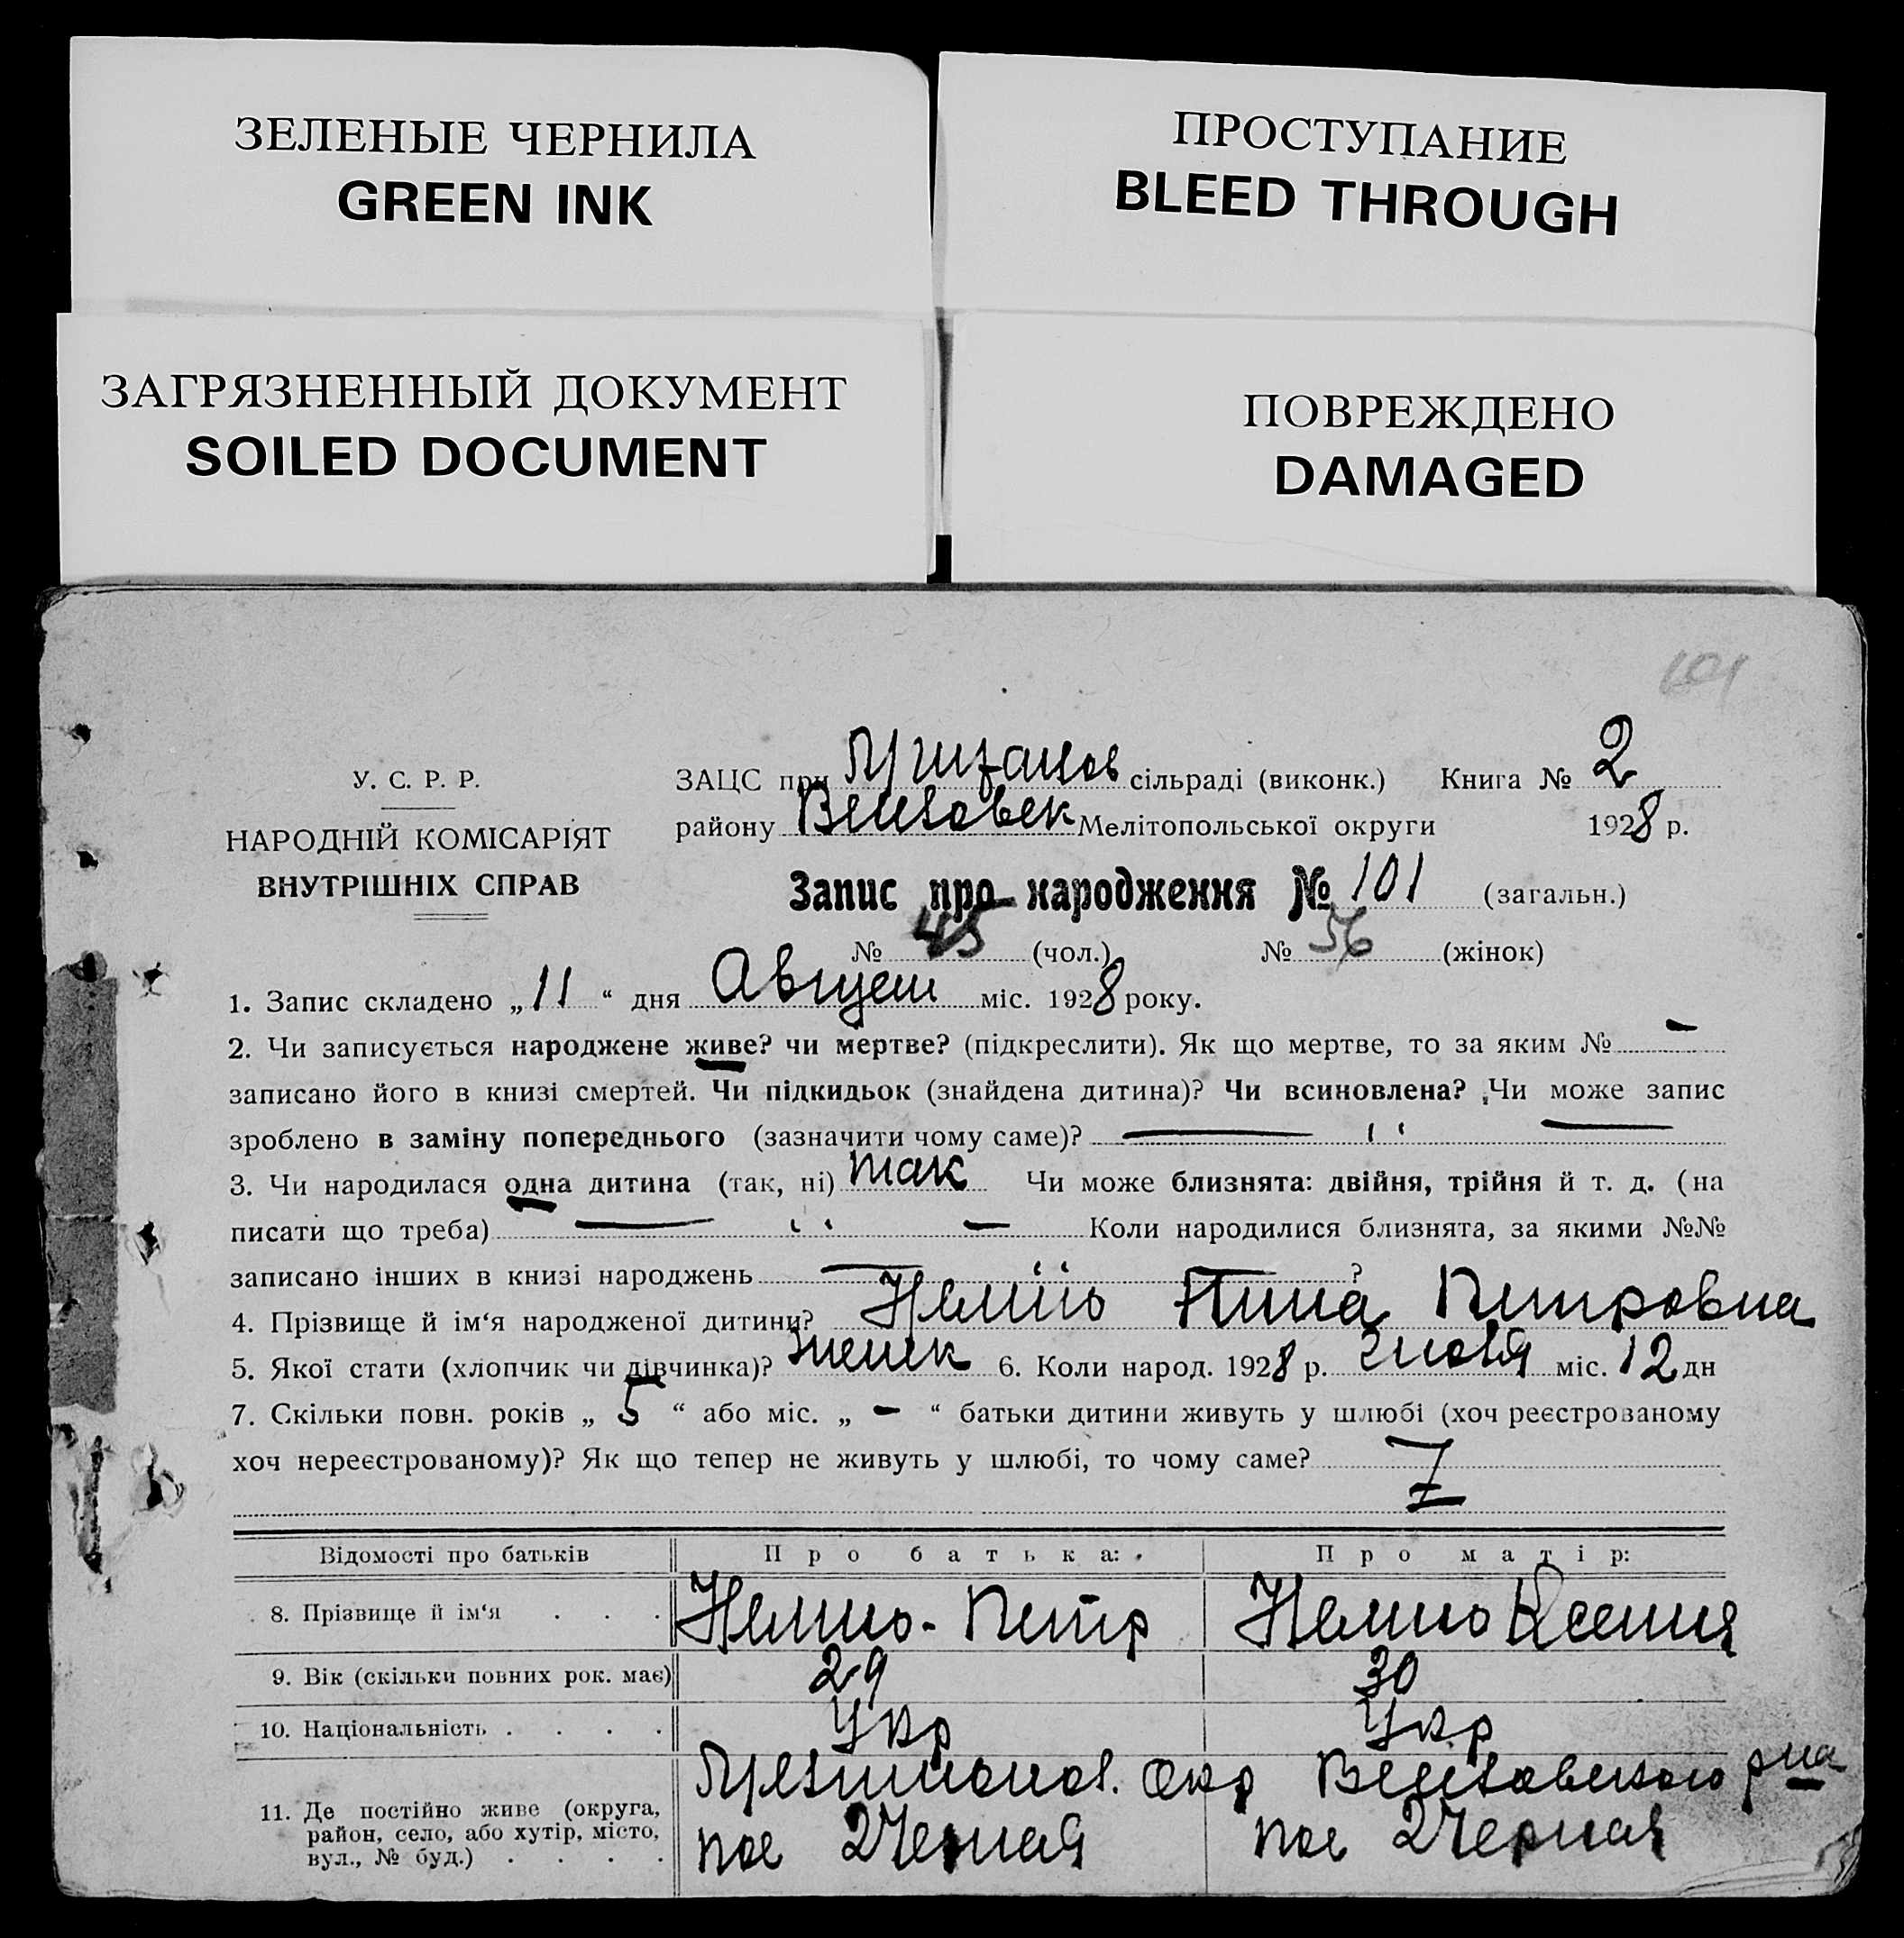 ЗЕЛЕНЫЕ ЧЕРНИЛА
GREEN INK
ПРОСТУПАНИЕ
BLEED THROUGH
ЗАГРЯЗНЕННЫЙ ДОКУМЕНТ
SOILED DOCUMENT
ПОВРЕЖДЕНО
DAMAGED
101
У. С. Р. Р.
НАРОДНІЙ КОМІСАРІЯТ
ВНУТРІШНІХ СПРАВ
ЗАЦС при сільраді (виконк.) Книга № 2
району Мелітопольської округи 1928 р.
Запис про народження № 101 (загальн.)
№ 45 (чол.) № 56 (жінок)
1. Запис складено „11“ дня Август міс. 1928 року.
2. Чи записується народжене живе? чи мертве? (підкреслити). Як що мертве, то за яким № —
записано його в книзі смертей. Чи підкидьок (знайдена дитина)? Чи всиновлена? Чи може запис
зроблено в заміну попереднього (зазначити чому саме)? — ‛‛ —
3. Чи народилася одна дитина (так, ні) так Чи може близнята: двійня, трійня й т. д. (на
писати що треба) — ‛‛ — Коли народилися близнята, за якими №№
записано інших в книзі народжень — ‛‛ — ?
4. Прізвище й ім‘я народженої дитини? Нина Петровна
5. Якої стати (хлопчик чи дівчинка)? женск 6. Коли народ. 1928 р. Июля міс. 12 дн
7. Скільки повн. років „5“ або міс. „—“ батьки дитини живуть у шлюбі (хоч реєстрованому
хоч нереєстрованому)? Як що тепер не живуть у шлюбі, то чому саме?
Відомості про батьків Про батька: Про матір:
8. Прізвище й ім‘я . . . Петр Ксения
9. Вік (скільки повних рок. має) 29 30
10. Національність . . . . Укр Укр
11. Де постійно живе (округа,
район, село, або хутір, місто,
вул., № буд.) . . . .
Окр р-на
пос 2 Черная пос 2 Черная